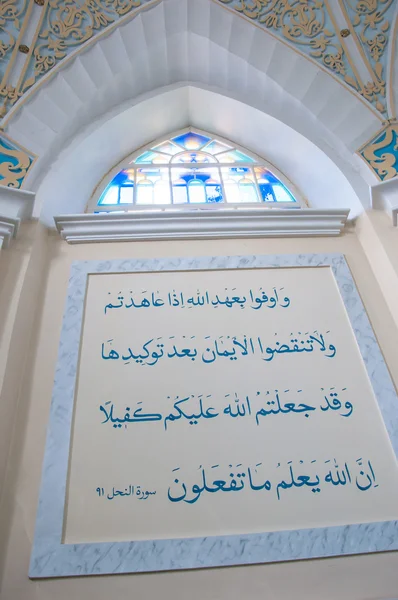 وَأَوْفُوا بِعَهْدِ اللهِ إِذَا عَاهَدْتُمْ
وَلَا تَنْقُضُوا الْأَيْمَانَ بَعْدَ تَوْكِيدِهَا
وَقَدْ جَعَلْتُمُ اللهَ عَلَيْكُمْ كَفِيلًا
إِنَّ اللهَ يَعْلَمُ مَا تَفْعَلُونَ سورة النحل ٩١